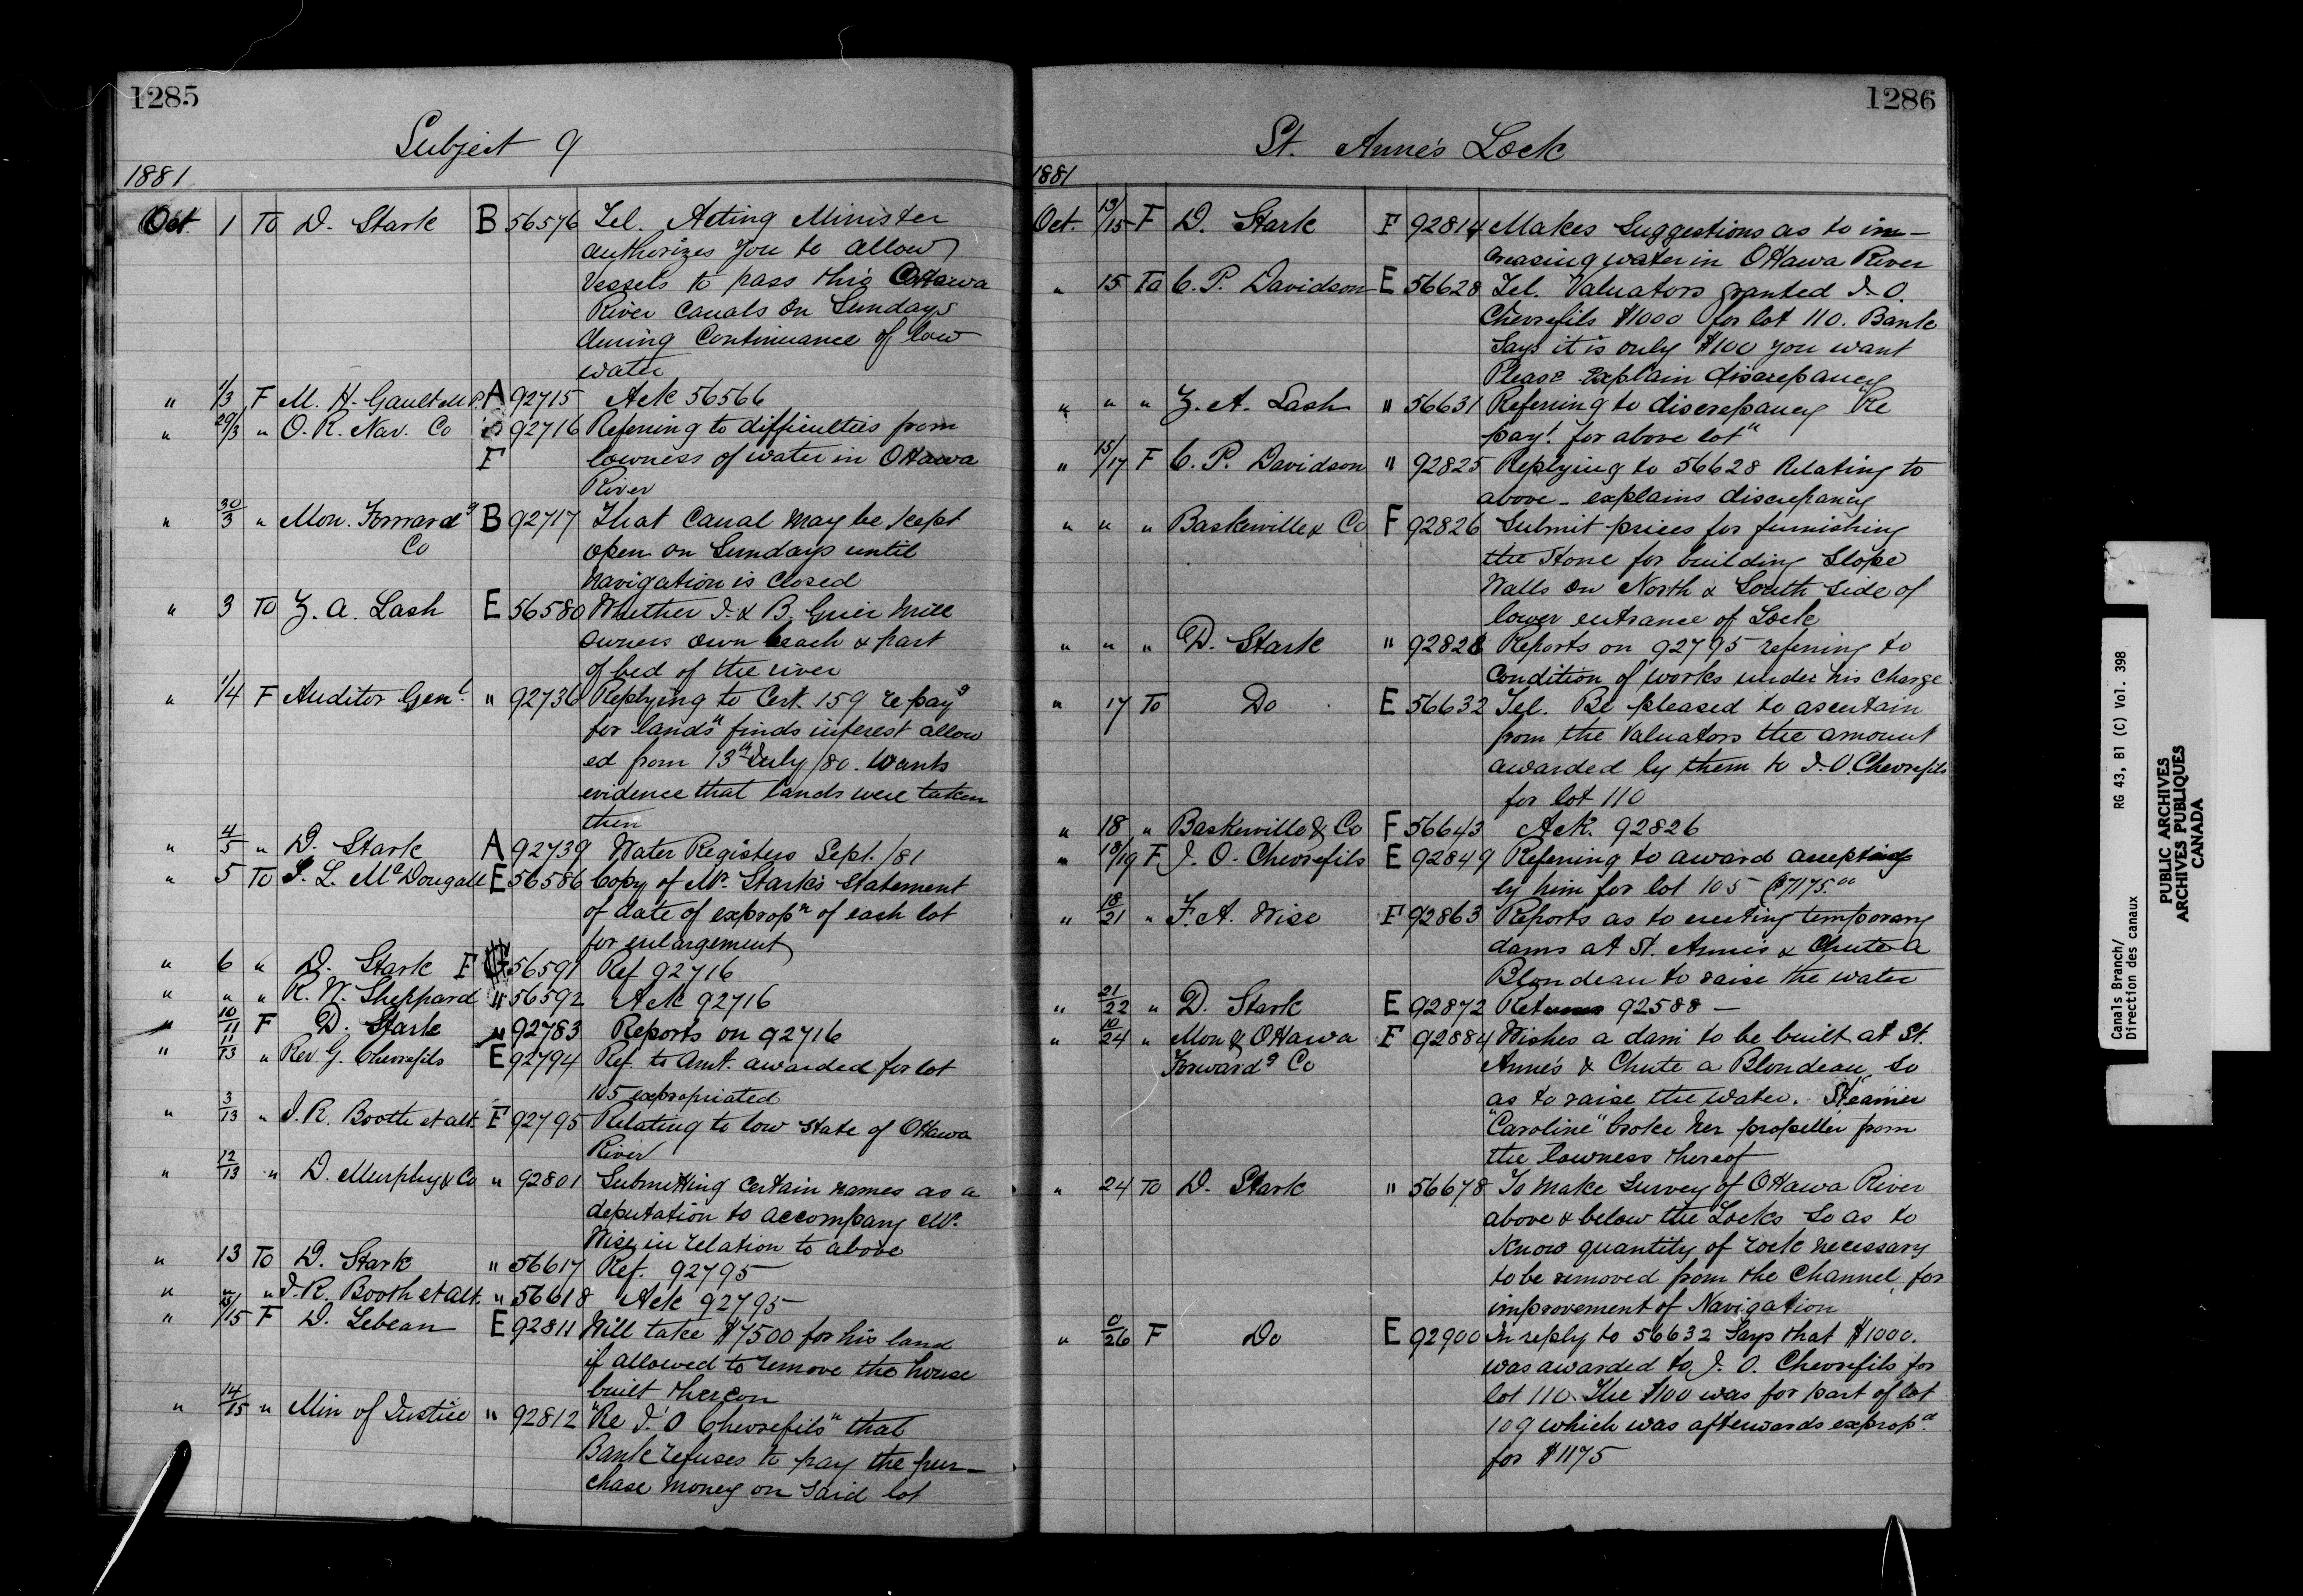 1285
Subject 9
1881
Oct. 1 To D. Stark B 56576 Tel. Acting Minister
authorizes you to allow
vessels to pass thro Ottawa
River Canals on Sundays
during Continuance of low
water
" 1/3 F M. H. Gault M.P. A 92715 Ack 56566
" 29/3 " O. R. Nav. Co 92716 Referring to difficulties from
F lowness of water in Ottawa
River
" 30/3 " Mon. Forward g B 92717 That Canal may be kept
Co open on Sundays until
navigation is closed
" 3 To Z. A. Lash E 56580 Whether J. & B. Grier Mill
owners own beach & part
of bed of the river
" 1/4 F Auditor Genl. " 92736 Replying to Cert. 159 re payg
for lands" finds interest allow
ed from 13th July /80. Wants
evidence that lands were taken
then
" 4/5 " D. Stark A 92739 Water Registers Sept. /81
" 5 To J. L. McDougall E 56586 Copy of Mr. Stark's Statement
of date of expropn of each lot
for enlargement
" 6 " D. Stark F 56591 Ref 92716
" " " R. W. Sheppard " 56592 Ack 92716
" 10/11 F D. Stark " 92783 Reports on 92716
" 11/13 " Rev G. Chevrefils E 92794 Ref. to Amt. awarded for lot
105 expropriated
" 3/13 " J. R. Booth et alt. F 92795 Relating to low state of Ottawa
River
" 12/13 " D. Murphy & Co " 92801 Submitting certain names as a
deputation to accompany Mr.
Wise in relation to above
" 13 To D. Stark " 56617 Ref. 92795
" " " J. R. Booth et alt. " 56618 Ack 92795
" /15 F D. Lebeau E 92811 Will take $7500 for his land
if allowed to remove the house
built thereon
" 14/15 " Min of Justice " 92812 "Re J. O Chevrefils" that
Bank refuses to pay the pur-
chase money on said lot
1286
St. Anne's Lock
1881
Oct. 13/15 F D. Stark F 92814 Makes Suggestions as to in-
creasing water in Ottawa River
" 15 To C. P. Davidson E 56628 Tel. Valuators granted J. O.
Chevrefils $1000 for lot 110. Bank
Says it is only $100 you want
Please Explain discrepancy
" " " Z. A. Lash " 56631 Referring to discrepancy "Re
payt. for above lot"
" 15/17 F C. P. Davidson " 92825 Replying to 56628 Relating to
above - explains discrepancy
" " " Baskerville & Co F 92826 Submit prices for furnishing
the Stone for building Slope
Walls on North & South side of
lower entrance of Lock
" " " D. Stark " 92828 Reports on 92795 referring to
Condition of works under his Charge
" 17 To Do E 56632 Tel. Be pleased to ascertain
from the Valuators the amount
awarded by them to J. O. Chevrefils
for lot 110
" 18 " Baskerville & Co F 56643 Ack. 92826
" 18/19 F J. O. Chevrefils E 92849 Referring to award accepting
by him for lot 105 ($7175.00
" 18/21 " F. A. Wise F 92863 Reports as to erecting temporary
dams at St. Anne's & Chute a
Blondeau to raise the water
" 21/22 " D. Stark E 92872 Returns 92588 —
" 10/24 " Mon & Ottawa F 92884 Wishes a dam to be built at St.
Forwardg Co Anne's & Chute a Blondeau, so
as to raise the water. Steamer
"Caroline" broke her propeller from
the lowness thereof
" 24 To D. Stark " 56678 To make Survey of Ottawa River
above & below the Locks so as to
know quantity of rock necessary
to be removed from the Channel, for
improvement of Navigation
" 0/26 F Do E 92900 In reply to 56632 Says that $1000.
was awarded to J. O. Chevrefils for
lot 110. The $100 was for part of lot
109 which was afterwards expropd.
for $1175
Canals Branch/ RG 43, B1 (C) Vol. 398
Direction des canaux
PUBLIC ARCHIVES
ARCHIVES PUBLIQUES
CANADA